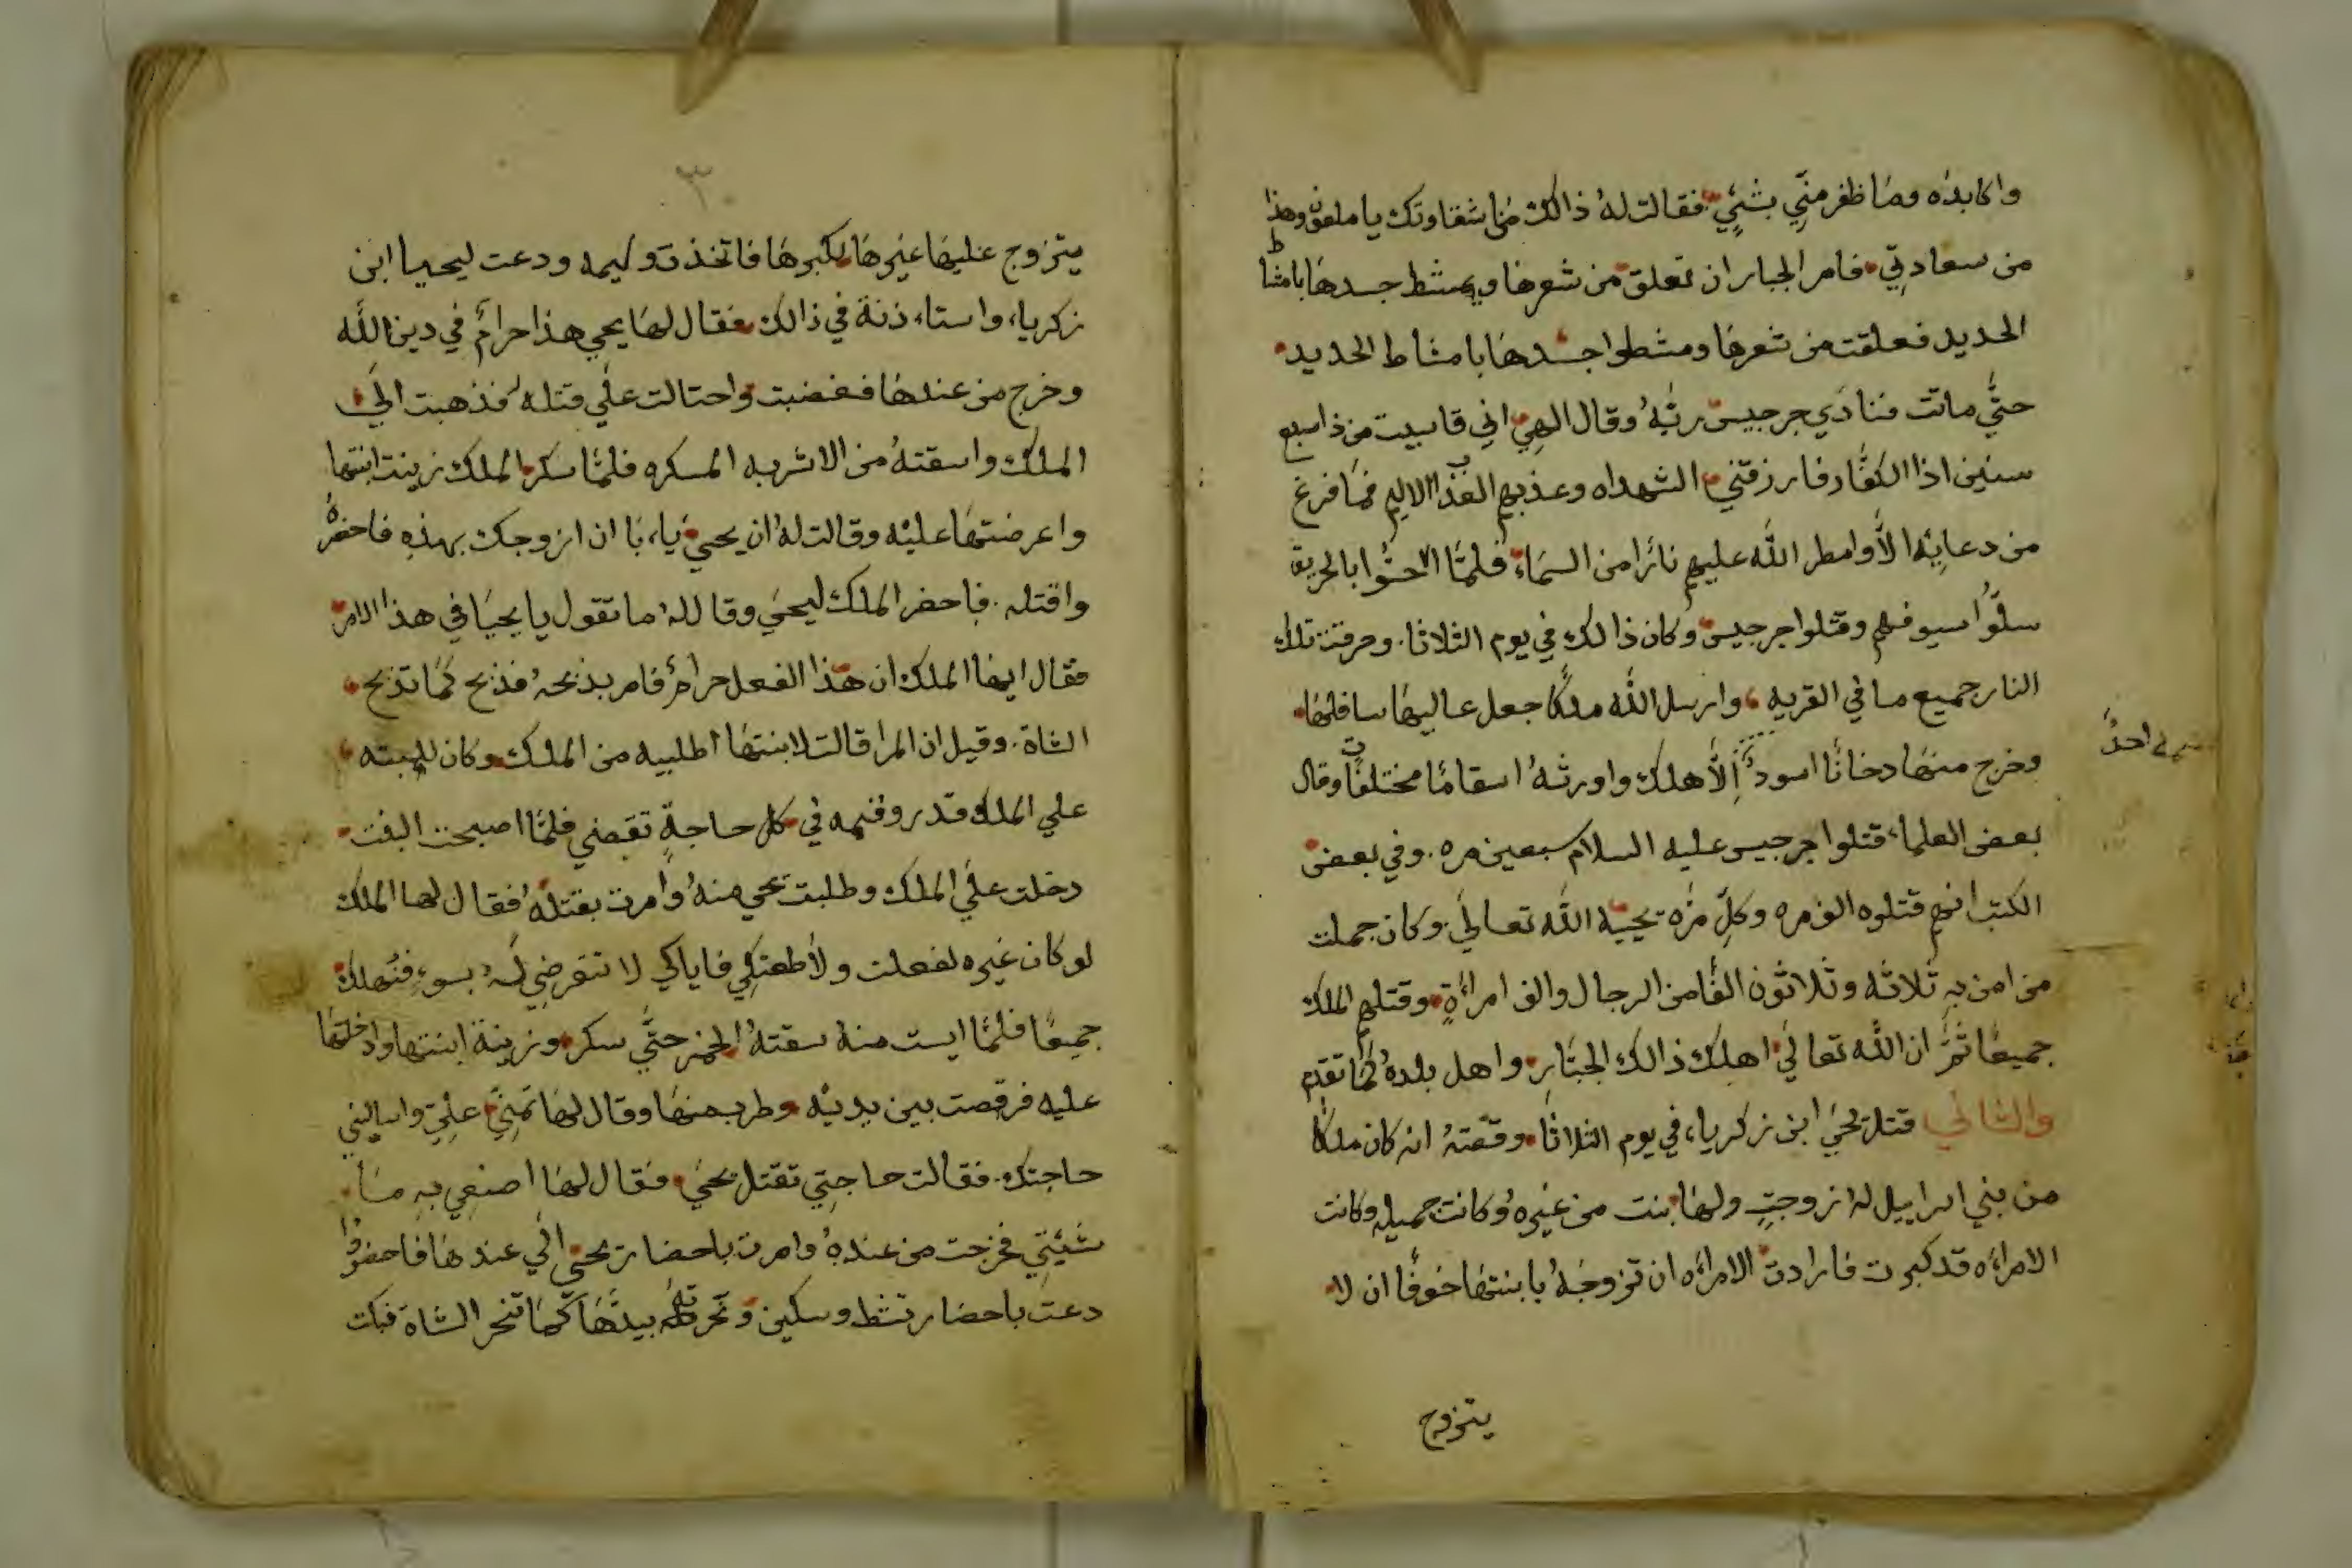 واكابده وما ظفر منّي بشئٍي فقالت لهُ ذالك من شقاوتك يا ملعون وهذا
من سعادتي فامر الجبار ان تعلق من شعرها ويمشط جسدها بامشاط
الحديد فعلقت من شعرها ومشطوا جسدها بامشاط الحديد
حتَّي ماتت فنادَي جرجيس ربَّهُ وقال الهي اني قاسيت من ذا سبع
سنين اذا الكفَّار فارزقني الشهداه وعذبهم العذاب الاليم فما فرغ
من دعايِهِ الاَّ وامطر الله عليهم نارًا من السماءِ فلمَّا احتُوا بالحريق
سلّوا سيوفهم وقتلوا جرجيس وكان ذالك في يوم الثلاثا. وحرقت تلك
النار جميع ما في القريه وارسل الله ملكًا جعل عاليها سافلها
وخرج منها دخانًا اسودُ الاَّ هلك واورثهُ اسقامًا مختلفات وقال
احدُ
بعض العلماء قتلوا جرجيس عليه السلام سبعين مره. وفي بعض
الكتب انهم قتلوه الف مره وكلّ مرّه يحييه الله تعالي. وكان جملت
من امن بهِ ثلاثه وثلاثون الفًا من الرجال والف امراةٍ وقتلهم الملك
جميعًا ثمَّ ان الله تعالي اهلك ذالك الجبَّار واهل بلده كما تقدم
والثاني قتل يحيَ ابن زكرياء في يوم الثلاثا وقصّتهُ انه كان ملكًا
من بني اسراييل لهُ زوجتٍ ولها بنت من غيره وكانت جميله وكانت
الامراه قد كبرت فارادت الامراه ان تزوجهُ بابنتها خوفًا ان لا
يتزوج
٣٠
يتزوج عليها غيرها لكبرها فاتخذت وليمه ودعت ليحيا ابن
زكرياء واستاء ذنة في ذالك فقال لها يحي هذا حرامٌ في دين الله
وخرج من عندها فغضبت واحتالت علي قتله فذهبت الي
الملك واسقتهُ من الاشربه المسكره فلمَّا سكر الملك زينت ابنتها
واعرضتها عليْه وقالت لهُ ان يحيَ ياء با ان ازوجك بهذهِ فاحضرهُ
واقتله. فاحضر الملك ليحيَ وقال لهُ ما تقول يا يحيَا في هذا الامر
فقال ايها الملك ان هذا الفعل حرامٌ فامر بذبحهُ فذبح كما تذبح
الشاة. وقيل ان المرا قالت لابنتها اطلبيه من الملك وكان للبنته
علي الملك قدر وقيمه في كل حاجةٍ تقضي فلمَّا اصبحت البنت
دخلت علي الملك وطلبت يحي منهُ وامرت بقتلهُ فقال لها الملك
لو كان غيره لفعلت ولأطعتكي فاياكي لا تتعرضي لهُ بسوءٍ فنُهلك
جميعًا فلمَّا ايست منه سقتهُ الخمر حتَّي سكر وزينة ابنتها وادخلتها
عليه فرقصت بين يديْه وطرب منها وقال لها تمنّي عليّ واساليني
حاجتك. فقالت حاجتي تقتل يحيَ فقال لها اصنعي بهِ ما
شيئتي فخرجت من عندهُ وامرت باحضار يحيَ الي عندها فاحضروا
دعت باحضار تشط وسكين ونحرتهُ بيدَها كما تنحر الشاة فبكت